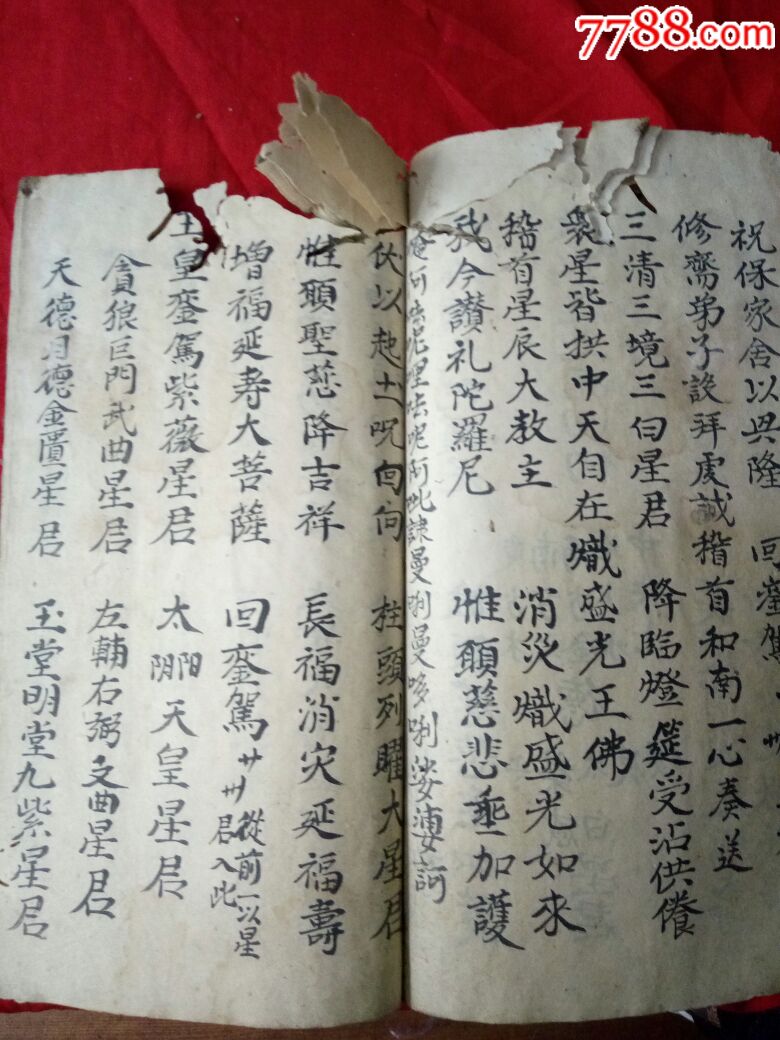 7788.com
祝保家舍以兴隆 回鑾駕
修齋弟子設拜虔誠稽首和南一心奏送
三清三境三曰星君 降臨燈筵受沾供餋
衆星皆拱中天自在熾盛光王佛
稽首星辰大教主 消災熾盛光如來
我今讃礼陀羅尼 惟願慈悲垂加護
唵阿呿呢哩呿呢阿吡隷曼唎曼哆唎娑嚩訶
伏以 呪回向 柱頭列曜大星君
惟願聖慈降吉祥 長福消灾延福壽
增福延寿大菩薩 回鑾駕 廿卅 從前一以星君入此
玉皇鑾駕紫薇星君 太陰陽天皇星君
貪狼巨門武曲星君 左輔右弼文曲星君
天德月德金匱星君 玉堂明堂九紫星君